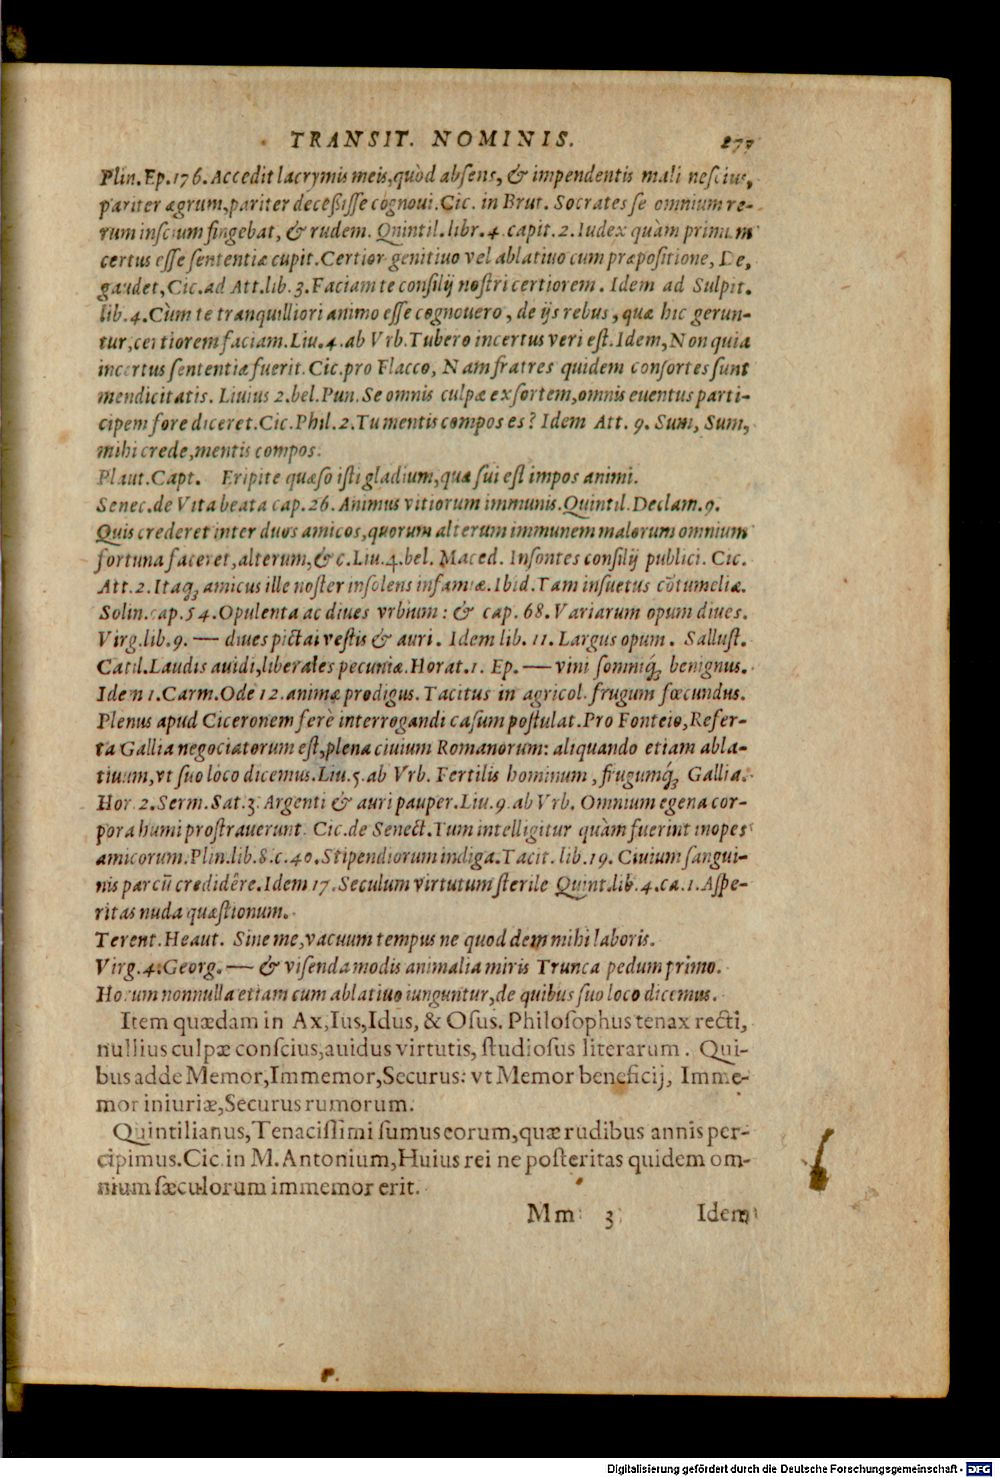 TRANSIT. NOMINIS. 277
Plin.Ep.176.Accedit lacrymis meis,quòd absens, & impendentis mali nescius,
pariter ægrum,pariter deceßisse cognoui.Cic. in Brut. Socrates se omnium re-
rum inscium fingebat, & rudem. Quintil.libr.4.capit.2.Iudex quàm primum
certus esse sententiæ cupit.Certior genitiuo vel ablatiuo cum præpositione, De,
gaudet,Cic.ad Att.lib.3.Faciam te consilij nostri certiorem. Idem ad Sulpit.
lib.4.Cùm te tranquilliori animo esse cognouero, de ijs rebus, quæ hic gerun-
tur,certiorem faciam.Liu.4.ab Vrb.Tubero incertus veri est.Idem,Non quia
incertus sententiæ fuerit.Cic.pro Flacco, Nam fratres quidem consortes sunt
mendicitatis. Liuius 2.bel.Pun.Se omnis culpæ exsortem,omnis euentus parti-
cipem fore diceret.Cic.Phil.2.Tu mentis compos es? Idem Att. 9. Sum, Sum,
mihi crede,mentis compos.
Plaut.Capt. Eripite quæso isti gladium,quæ sui est impos animi.
Senec.de Vita beata cap.26.Animus vitiorum immunis.Quintil.Declam.9.
Quis crederet inter duos amicos,quorum alterum immunem malorum omnium
fortuna faceret,alterum,&c.Liu.4.bel. Maced. Insontes consilij publici. Cic.
Att.2.Itaq; amicus ille noster insolens infamiæ.Ibid.Tam insuetus cõtumeliæ.
Solin.cap.54.Opulenta ac diues vrbium: & cap. 68.Variarum opum diues.
Virg.lib.9. — diues pictai vestis & auri. Idem lib. 11.Largus opum. Sallust.
Catil.Laudis auidi,liberales pecuniæ.Horat.1. Ep. — vini somniq́; benignus.
Idem 1.Carm.Ode 12.animæ prodigus. Tacitus in agricol.frugum fœcundus.
Plenus apud Ciceronem ferè interrogandi casum postulat.Pro Fonteio,Refer-
ta Gallia negociatorum est,plena ciuium Romanorum: aliquando etiam abla-
tiuum,vt suo loco dicemus.Liu.5.ab Vrb. Fertilis hominum, frugumq́; Gallia.
Hor.2.Serm.Sat.3.Argenti & auri pauper.Liu.9.ab Vrb. Omnium egena cor-
pora humi prostrauerunt. Cic.de Senect.Tum intelligitur quàm fuerint inopes
amicorum.Plin.lib.8.c.40.Stipendiorum indiga.Tacit.lib.19. Ciuium sangui-
nis parcũ credidêre.Idem 17.Seculum virtutum sterile Quint.lib.4.ca.1.Aspe-
ritas nuda quæstionum.
Terent.Heaut. Sine me,vacuum tempus ne quod dem mihi laboris.
Virg.4.Georg.— & visenda modis animalia miris Trunca pedum primo.
Horum nonnulla etiam cum ablatiuo iunguntur,de quibus suo loco dicemus.
Item quædam in Ax,Ius,Idus, & Osus. Philosophus tenax recti,
nullius culpæ conscius,auidus virtutis, studiosus literarum. Qui-
bus adde Memor,Immemor,Securus: vt Memor beneficij, Imme-
mor iniuriæ,Securus rumorum.
Quintilianus,Tenacissimi sumus eorum,quæ rudibus annis per-
cipimus.Cic.in M.Antonium,Huius rei ne posteritas quidem om-
nium sæculorum immemor erit.
Mm 3 Idem
Digitalisierung gefördert durch die Deutsche Forschungsgemeinschaft - DFG